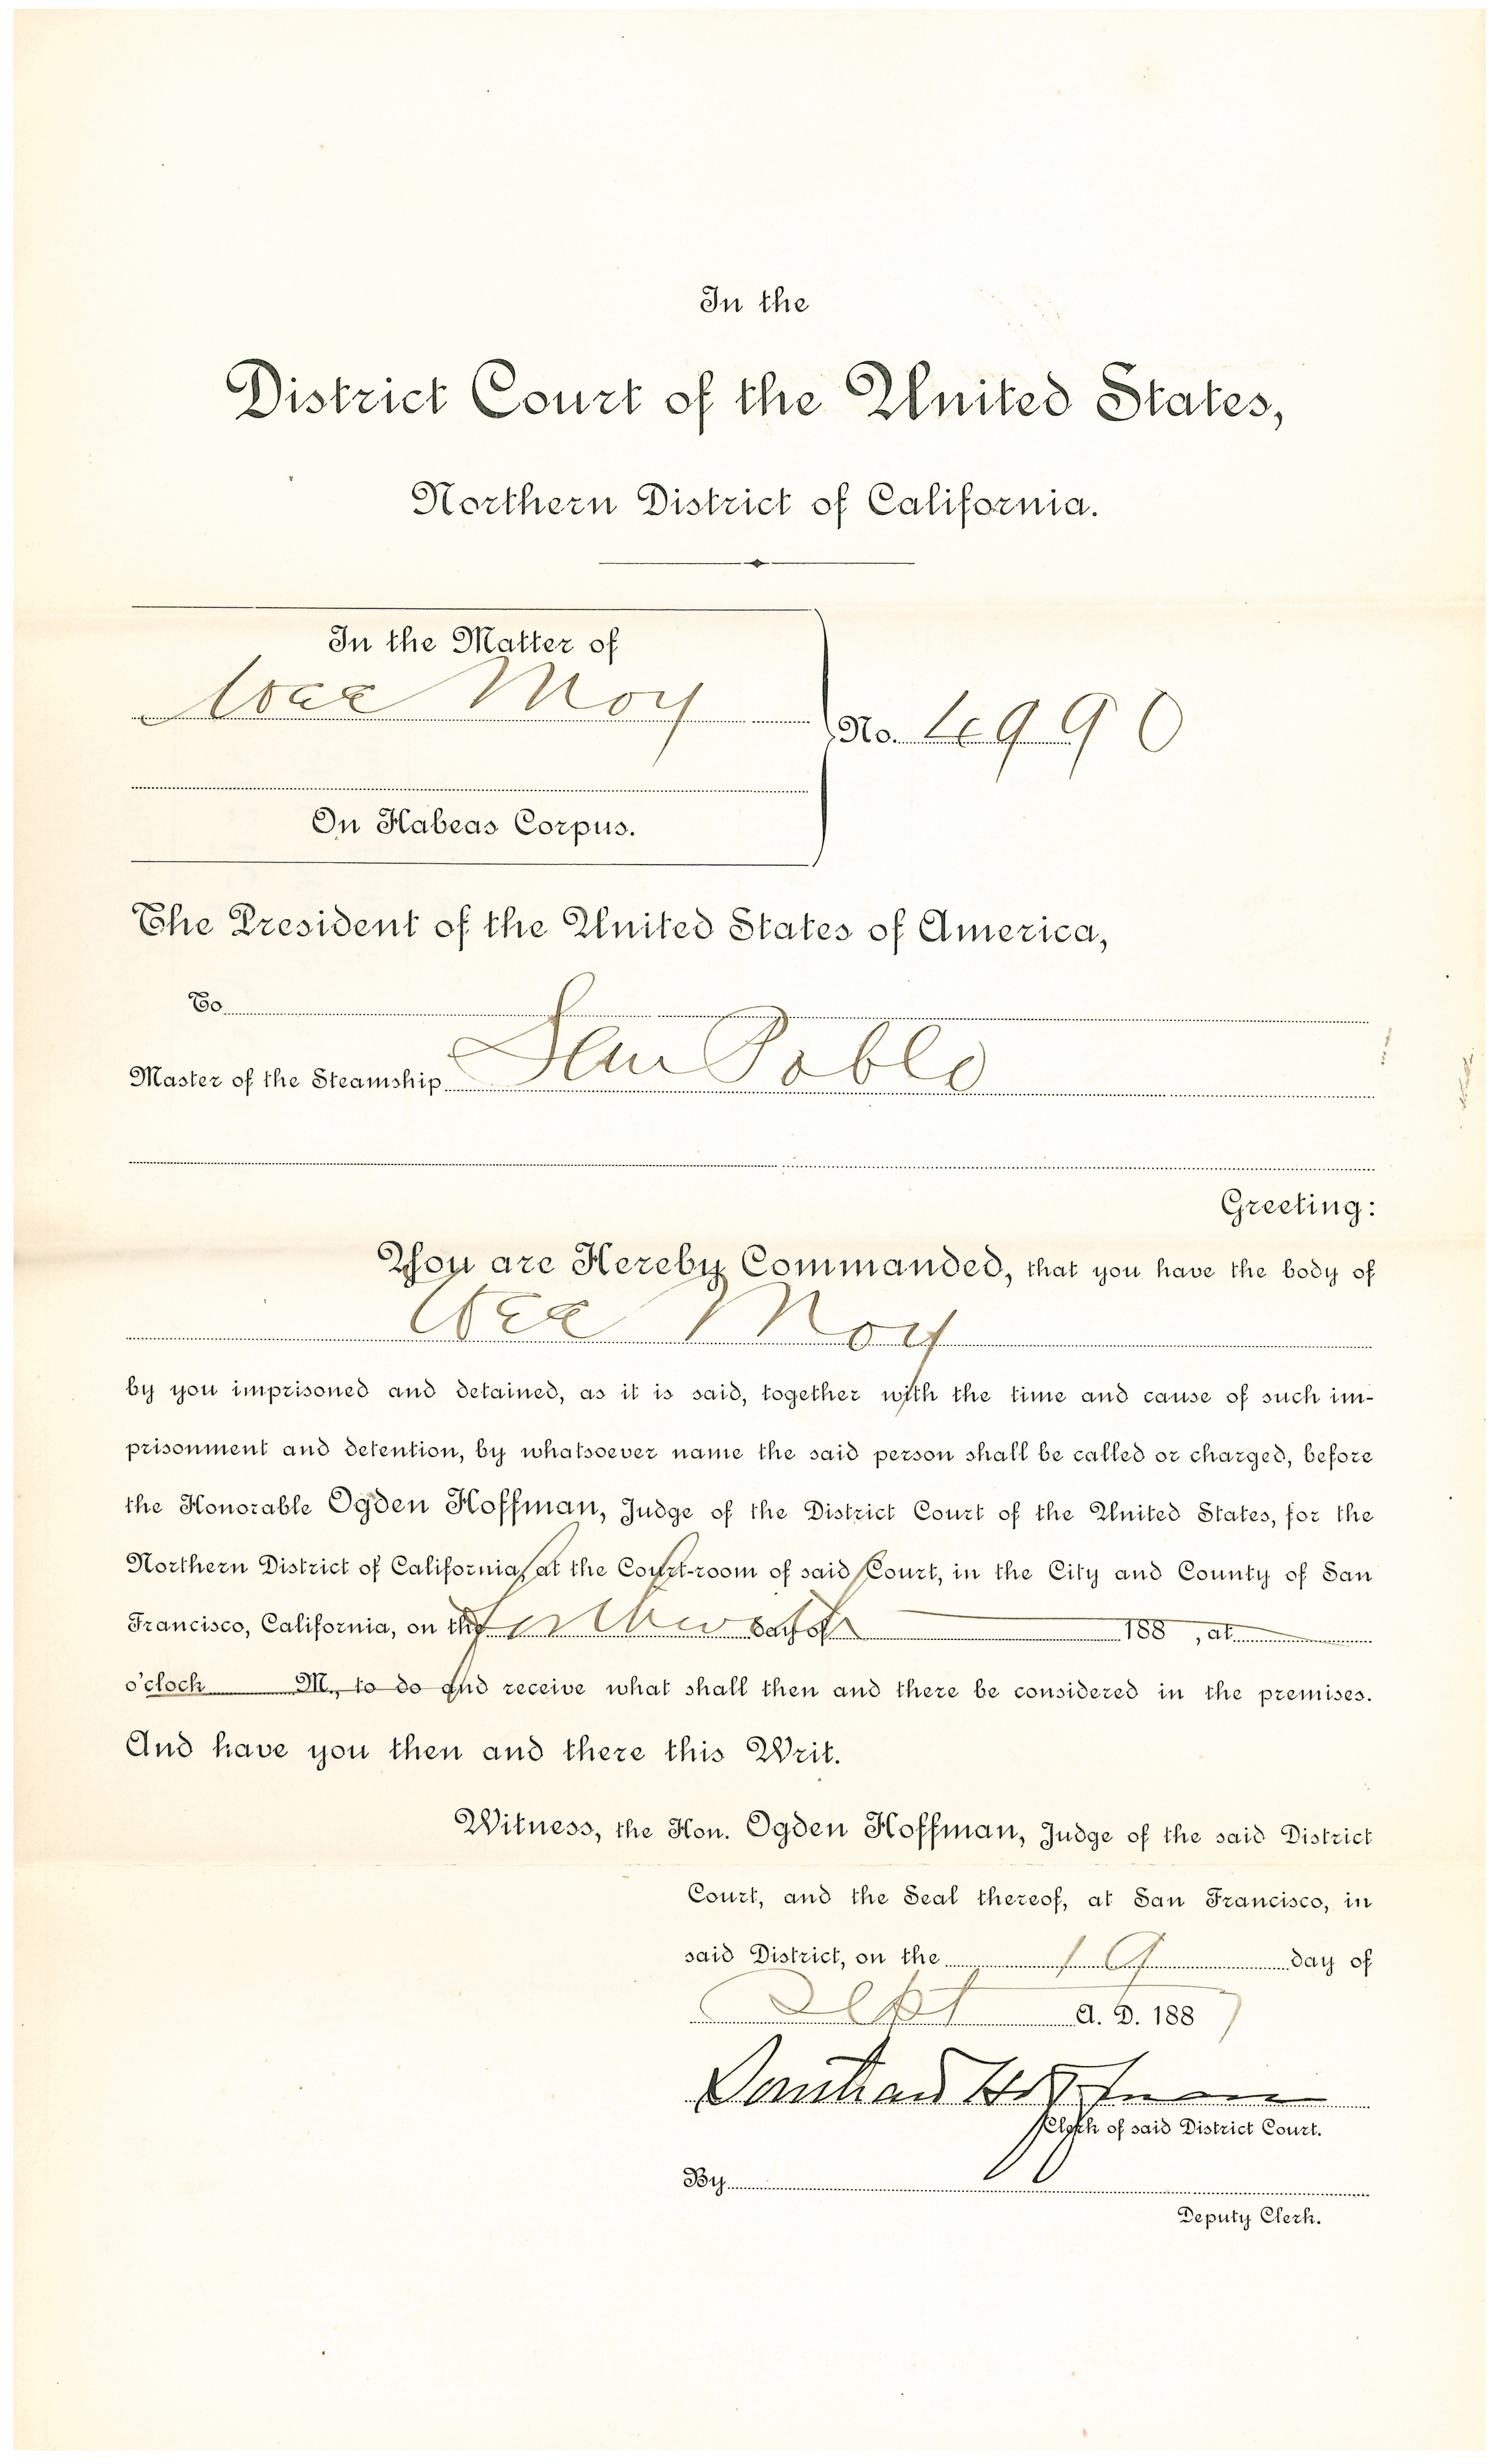 In the
District Court of the United States,
Northern District of California.
In the Matter of
Wee Moy
No. 4990
On Habeas Corpus.
The President of the United States of America,
To
Master of the Steamship San Pablo
Greeting:
You are Hereby Commanded, that you have the body of
Wee Moy
by you imprisoned and detained, as it is said, together with the time and cause of such im-
prisonment and detention, by whatsoever name the said person shall be called or charged, before
the Honorable Ogden Hoffman, Judge of the District Court of the United States, for the
Northern District of California, at the Court-room of said Court, in the City and County of San
Francisco, California, on the forthwith day of 188 , at
o'clock M., to do and receive what shall then and there be considered in the premises.
And have you then and there this Writ.
Witness, the Hon. Ogden Hoffman, Judge of the said District
Court, and the Seal thereof, at San Francisco, in
said District, on the 19 day of
Sept A. D. 1887
Southard Hoffman
Clerk of said District Court.
By
Deputy Clerk.